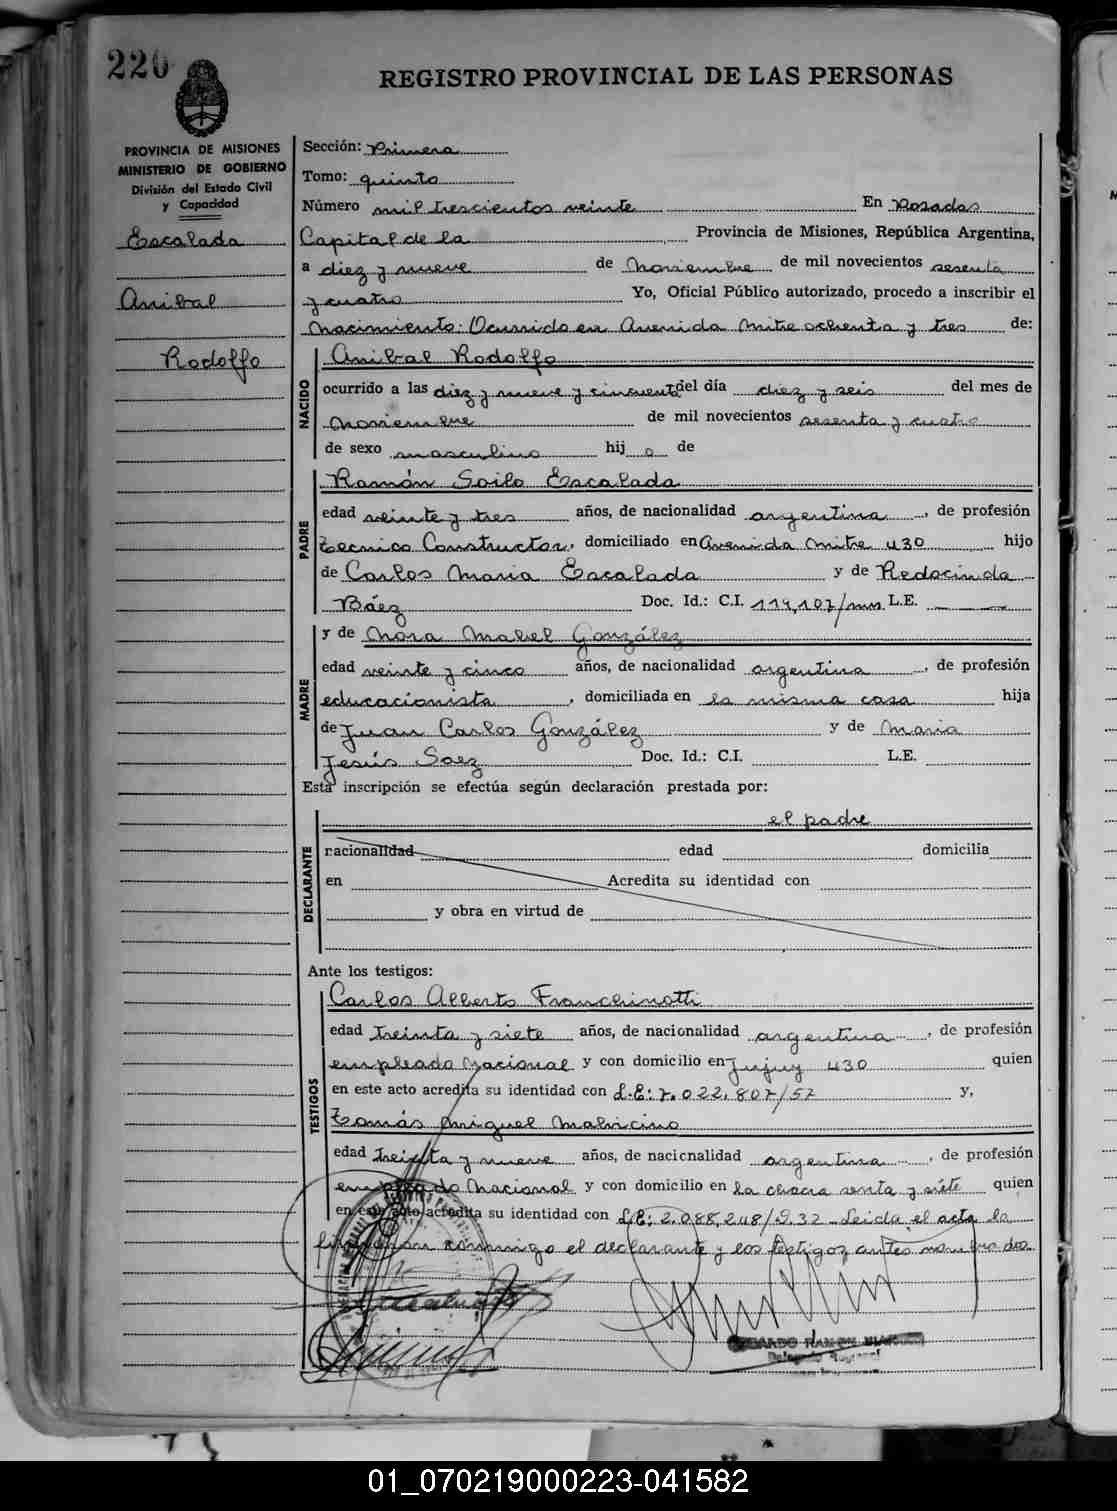 220
REGISTRO PROVINCIAL DE LAS PERSONAS
PROVINCIA DE MISIONES
MINISTERIO DE GOBIERNO
División del Estado Civil
y Capacidad
Escalada
Anibal
Rodolfo
Sección: Primera
Tomo: quinto
Número mil trescientos veinte En Posadas
Capital de la Provincia de Misiones, República Argentina,
a diez y nueve de Noviembre de mil novecientos sesenta
y cuatro Yo, Oficial Público autorizado, procedo a inscribir el
Nacimiento: Ocurrido en Avenida Mitre ochenta y tres de:
NACIDO
Anibal Rodolfo
ocurrido a las diez y nueve y cincuenta del día diez y seis del mes de
Noviembre de mil novecientos sesenta y cuatro
de sexo masculino hijo de
PADRE
Ramón Soilo Escalada
edad veinte y tres años, de nacionalidad argentina, de profesión
Tecnico Constructor, domiciliado en Avenida Mitre 430 hijo
de Carlos Maria Escalada y de Redocinda
Báez Doc. Id.: C.I. 119,107/mns L.E.
MADRE
y de Nora Mabel González
edad veinte y cinco años, de nacionalidad argentina, de profesión
educacionista, domiciliada en la misma casa hija
de Juan Carlos González y de Maria
Jesús Saez Doc. Id.: C.I. L.E.
Esta inscripción se efectúa según declaración prestada por:
DECLARANTE
el padre
nacionalidad edad domicilia
en Acredita su identidad con
y obra en virtud de
Ante los testigos:
TESTIGOS
Carlos Alberto Franchinotti
edad treinta y siete años, de nacionalidad argentina, de profesión
empleado Nacional y con domicilio en Jujuy 430 quien
en este acto acredita su identidad con L.E: 7.022.807/57 y,
Tomás Miguel Malvicino
edad treinta y nueve años, de nacicnalidad argentina, de profesión
empleado Nacional y con domicilio en la chacra senta y siete quien
en este acto acredita su identidad con L.E: 2.088,248/9.32 Leida el acta la
firmaron conmigo el declarante y los testigos antes nombrados
RAMON
01_070219000223-041582